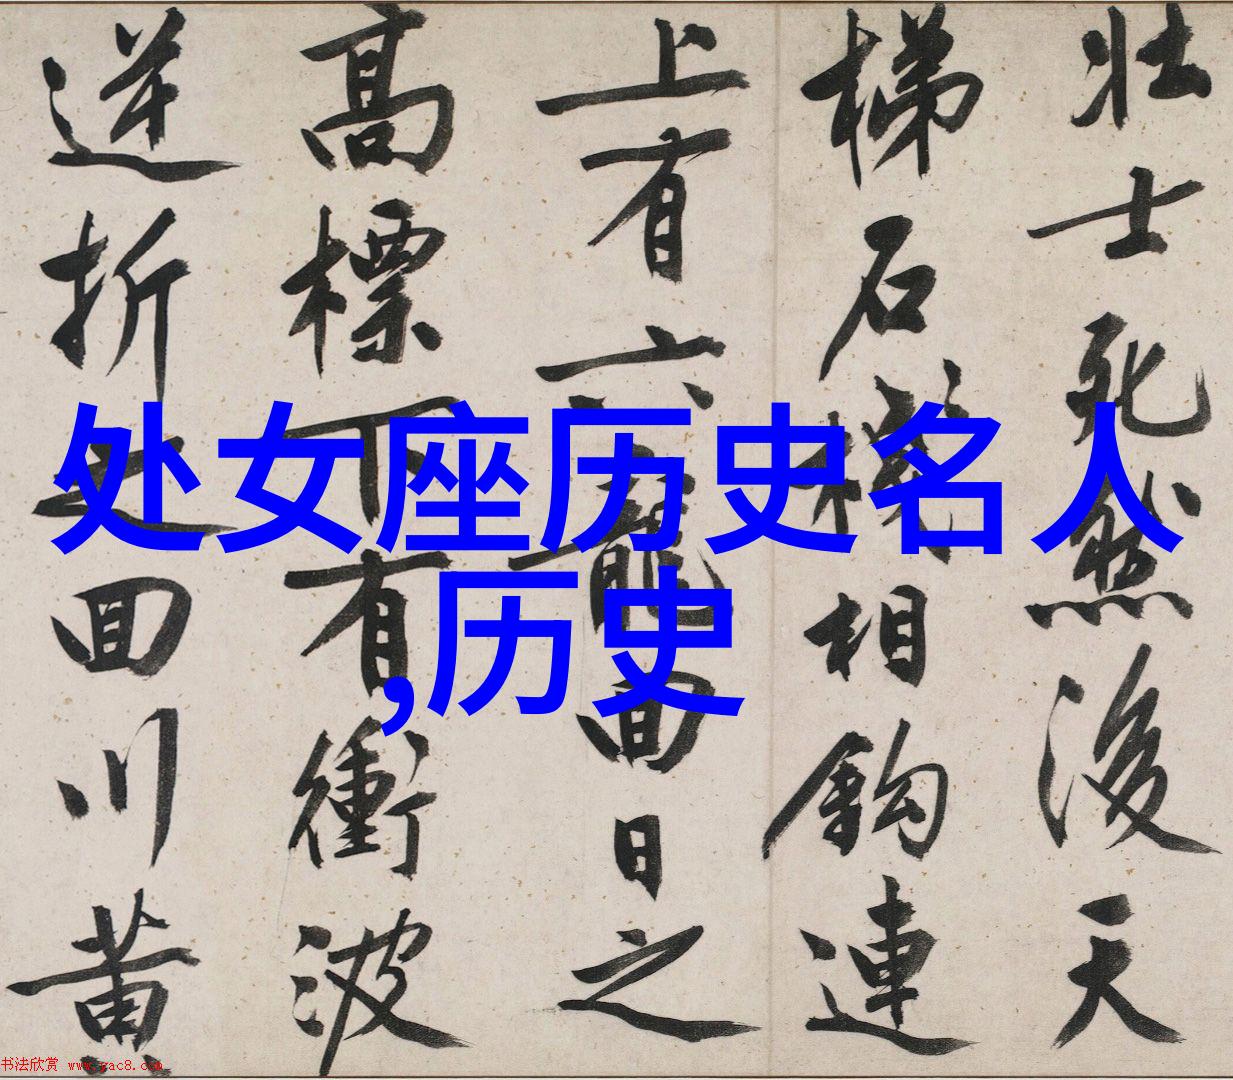 壯士死然後天
梯石棧相鈎連
上有六龍回日之
高標下有衝波
逆折之回川黃
处女座历史名人
,历史
书法欣赏 www.yac8.com